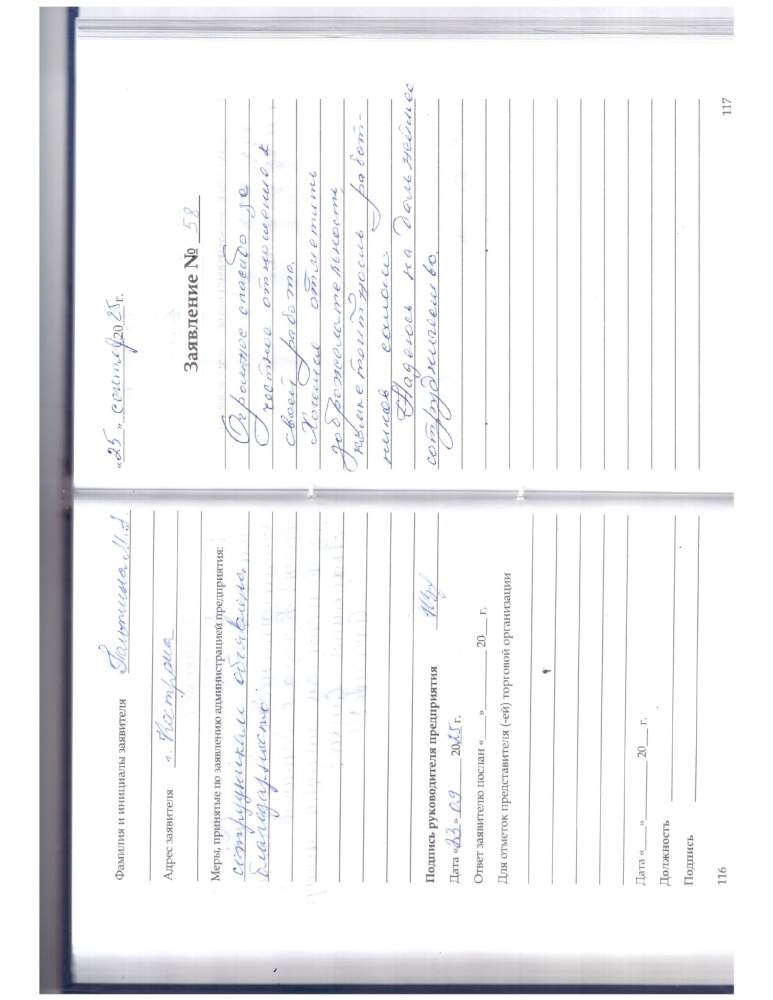 Фамилия и инициалы заявителя Галочкина М.А
Адрес заявителя г. Кострома
Меры, принятые по заявлению администрацией предприятия:
сотрудникам объявлена
благодарность
Подпись руководителя предприятия
Дата «23» 09 2025 г.
Ответ заявителю послан «___» ______ 20__ г.
Для отметок представителя (-ей) торговой организации
Дата «___» ______ 20__ г.
Должность
Подпись
116
«25» сентяб 2025г.
Заявление № 58
Огромное спасибо за
честное отношение к
своей работе.
Хочется отметить
доброжелательность,
компетентность работ-
ников
Надеюсь на дальнейшее
сотрудничество.
117